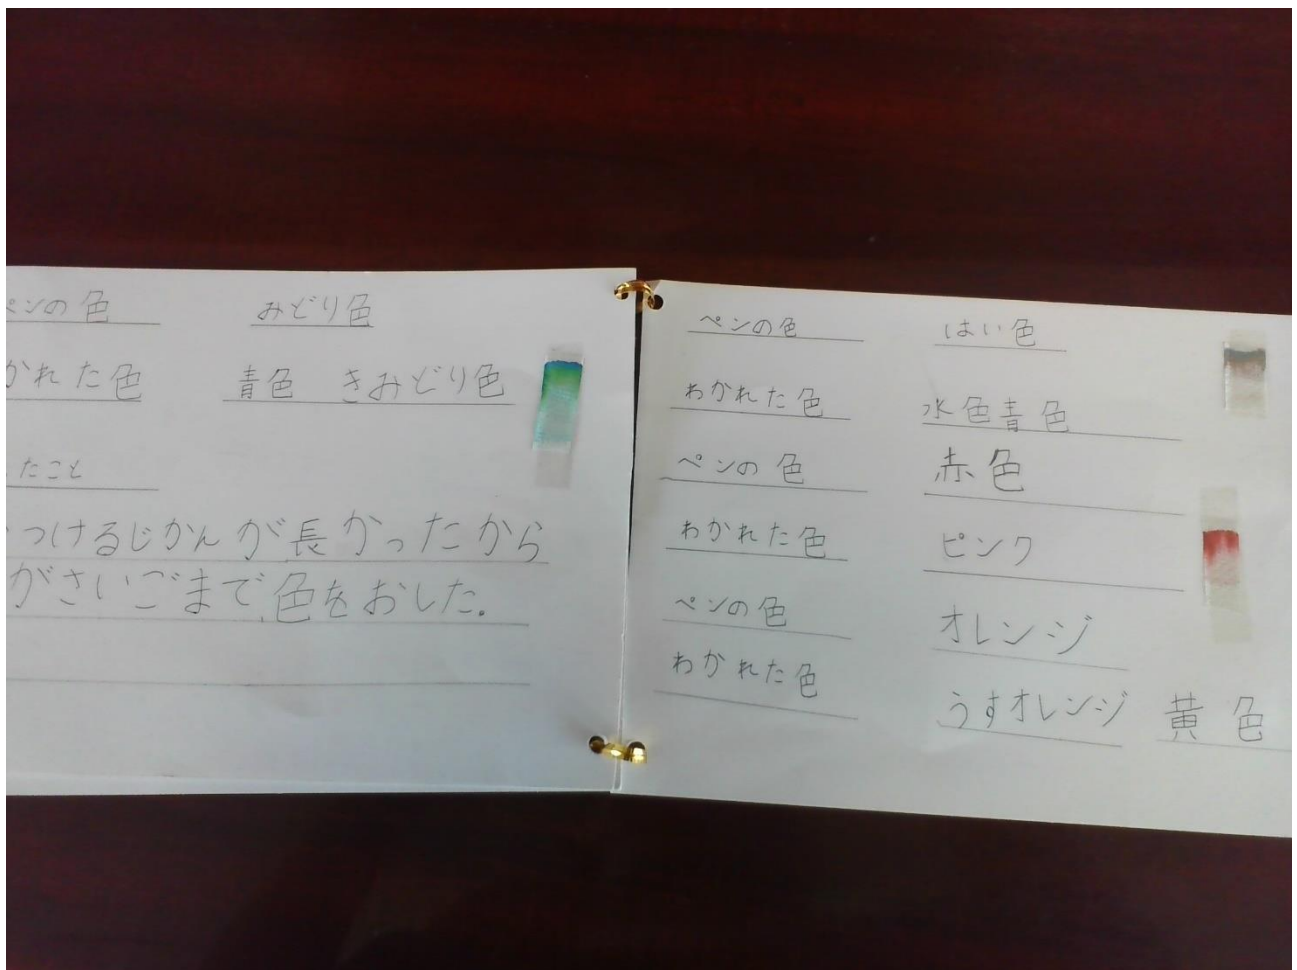 ペンの色 みどり色
かれた色 青色 きみどり色
たこと
つけるじかんが長かったから
がさいごまで色をおした。
ペンの色 はい色
わかれた色 水色青色
ペンの色 赤色
わかれた色 ピンク
ペンの色 オレンジ
わかれた色 うすオレンジ 黄色